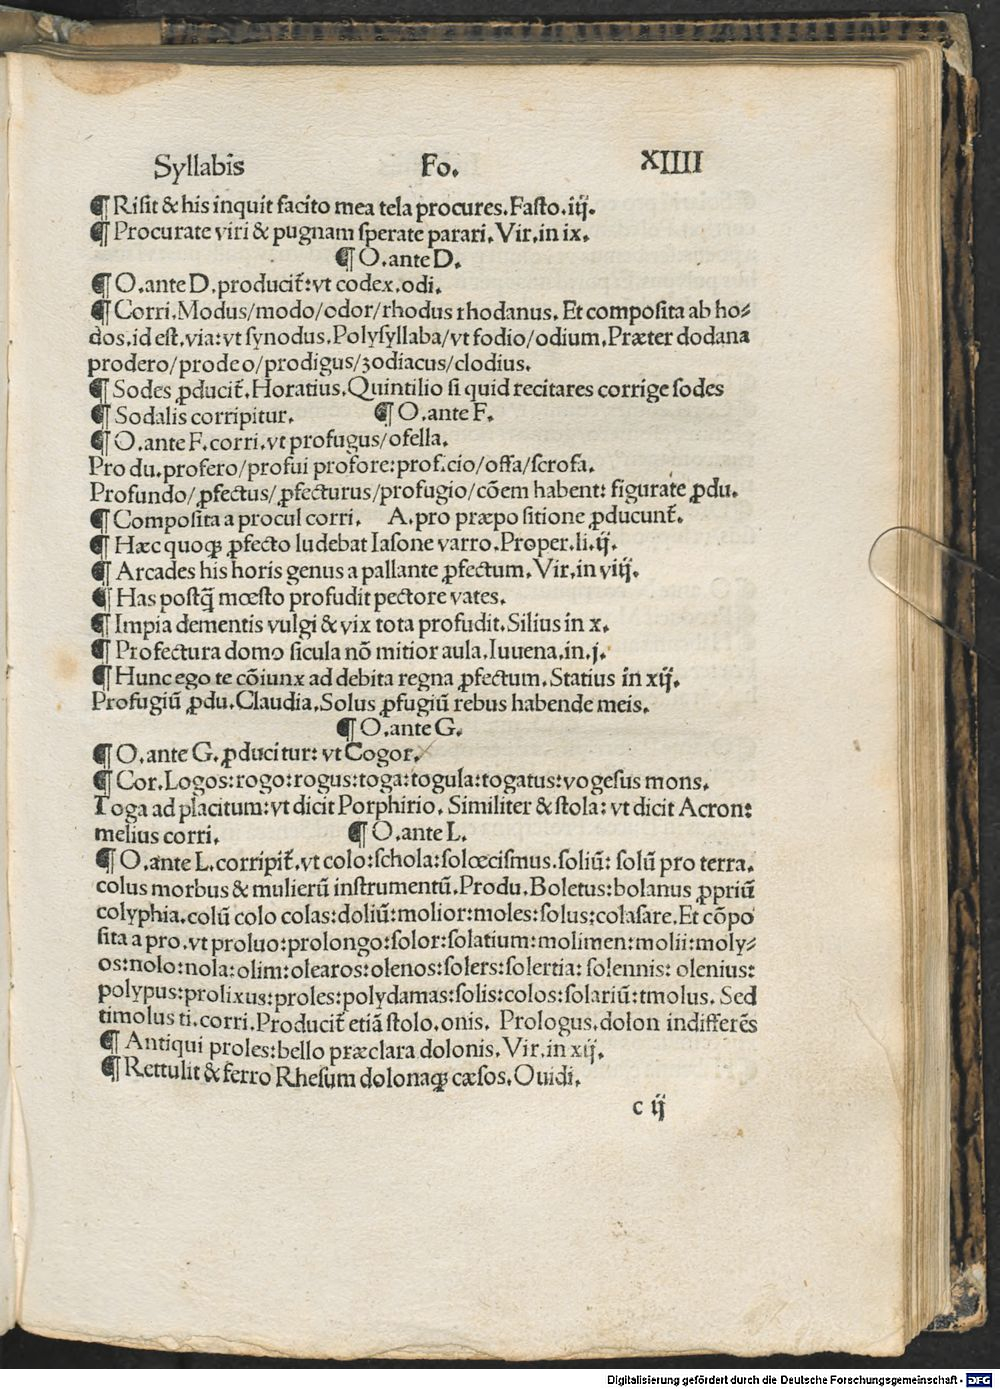 Syllabis Fo. XIIII
¶ Risit & his inquit facito mea tela procures. Fasto. iij.
¶ Procurate viri & pugnam sperate parari. Vir. in ix.
¶ O. ante D.
¶ O. ante D. producit̃: vt codex. odi.
¶ Corri. Modus/modo/odor/rhodus rhodanus. Et composita ab ho⸗
dos. id est. via: vt synodus. Polysyllaba/vt fodio/odium. Præter dodana
prodero/prodeo/prodigus/zodiacus/clodius.
¶ Sodes ꝓducit̃. Horatius. Quintilio si quid recitares corrige sodes
¶ Sodalis corripitur. ¶ O. ante F.
¶ O. ante F. corri. vt profugus/ofella.
Pro du. profero/profui profore: proficio/offa/scrofa.
Profundo/ꝓfectus/ꝓfecturus/profugio/cõem habent: figurate ꝓdu.
¶ Composita a procul corri. A. pro præpo sitione ꝓducunt̃.
¶ Hæc quoqꝫ ꝓfecto ludebat Iasone varro. Proper. li. ij.
¶ Arcades his horis genus a pallante ꝓfectum. Vir. in viij.
¶ Has postq̃ mœsto profudit pectore vates.
¶ Impia dementis vulgi & vix tota profudit. Silius in x.
¶ Profectura domo sicula nõ mitior aula. Iuuena. in. j.
¶ Hunc ego te cõiunx ad debita regna ꝓfectum. Statius in xij.
Profugiũ ꝓdu. Claudia. Solus ꝓfugiũ rebus habende meis.
¶ O. ante G.
¶ O. ante G. ꝓducitur: vt Cogor.
¶ Cor. Logos: rogo: rogus: toga: togula: togatus: vogesus mons.
Toga ad placitum: vt dicit Porphirio. Similiter & stola: vt dicit Acron:
melius corri. ¶ O. ante L.
¶ O. ante L. corripit̃. vt colo: schola: solœcismus. soliũ: solũ pro terra.
colus morbus & mulierũ instrumentũ. Produ. Boletus: bolanus ꝓpriũ
colyphia. colũ colo colas: doliũ: molior: moles: solus: colasare. Et cõpo
sita a pro. vt proluo: prolongo: solor: solatium: molimen: molii: moly⸗
os: nolo: nola: olim: olearos: olenos: solers: solertia: solennis: olenius:
polypus: prolixus: proles: polydamas: solis: colos: solariũ: tmolus. Sed
timolus ti. corri. Producit̃ etiã stolo. onis. Prologus. dolon indifferẽs
¶ Antiqui proles: bello præclara dolonis. Vir. in xij.
¶ Rettulit & ferro Rhesum dolonaqꝫ cæsos. Ouidi.
c ij
Digitalisierung gefördert durch die Deutsche Forschungsgemeinschaft - DFG